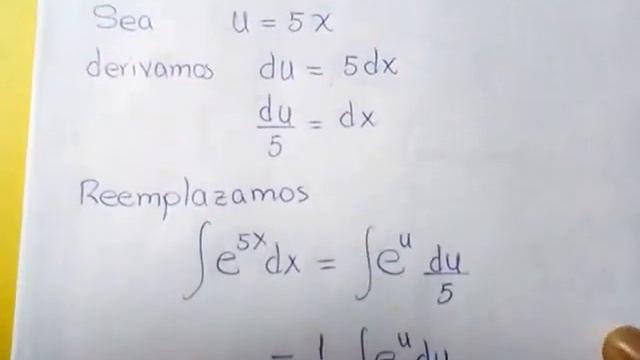 Sea u = 5x
derivamos du = 5dx
du/5 = dx
Reemplazamos
∫e^5x dx = ∫e^u du/5
= 1 ∫e^u du